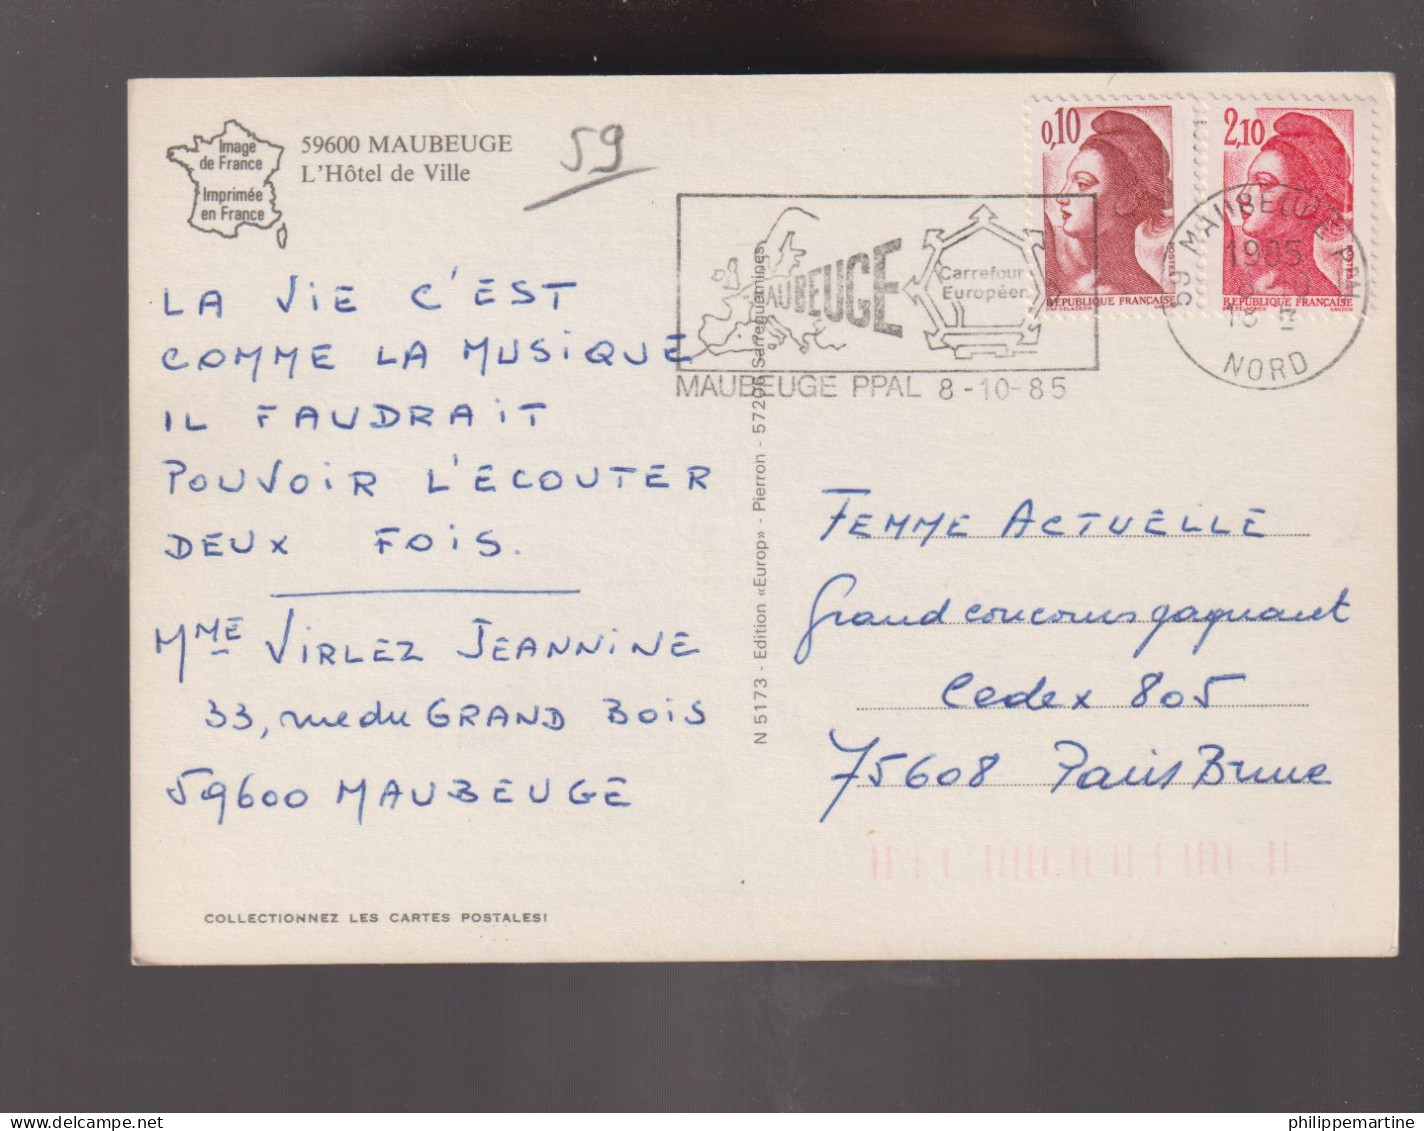 Image
de France
Imprimée
en France
59600 MAUBEUGE
L'Hôtel de Ville
59
0,10
POSTES
RÉPUBLIQUE FRANÇAISE
D'AP. DELACROIX GANDON
2,10
POSTES
RÉPUBLIQUE FRANÇAISE
D'AP. DELACROIX GANDON
MAUBEUGE
Carrefour
Européen
MAUBEUGE PPAL 8-10-85
59 MAUBEUGE PPAL
1985
NORD
LA VIE C'EST
COMME LA MUSIQUE
IL FAUDRAIT
POUVOIR L'ECOUTER
DEUX FOIS.
MME VIRLEZ JEANNINE
33, rue du GRAND BOIS
59600 MAUBEUGE
N 5173 - Edition «Europ» - Pierron - 57206 Sarreguemines
FEMME ACTUELLE
Grand concours gagnant
Cedex 805
75608 Paris Brune
COLLECTIONNEZ LES CARTES POSTALES!
philippemartine